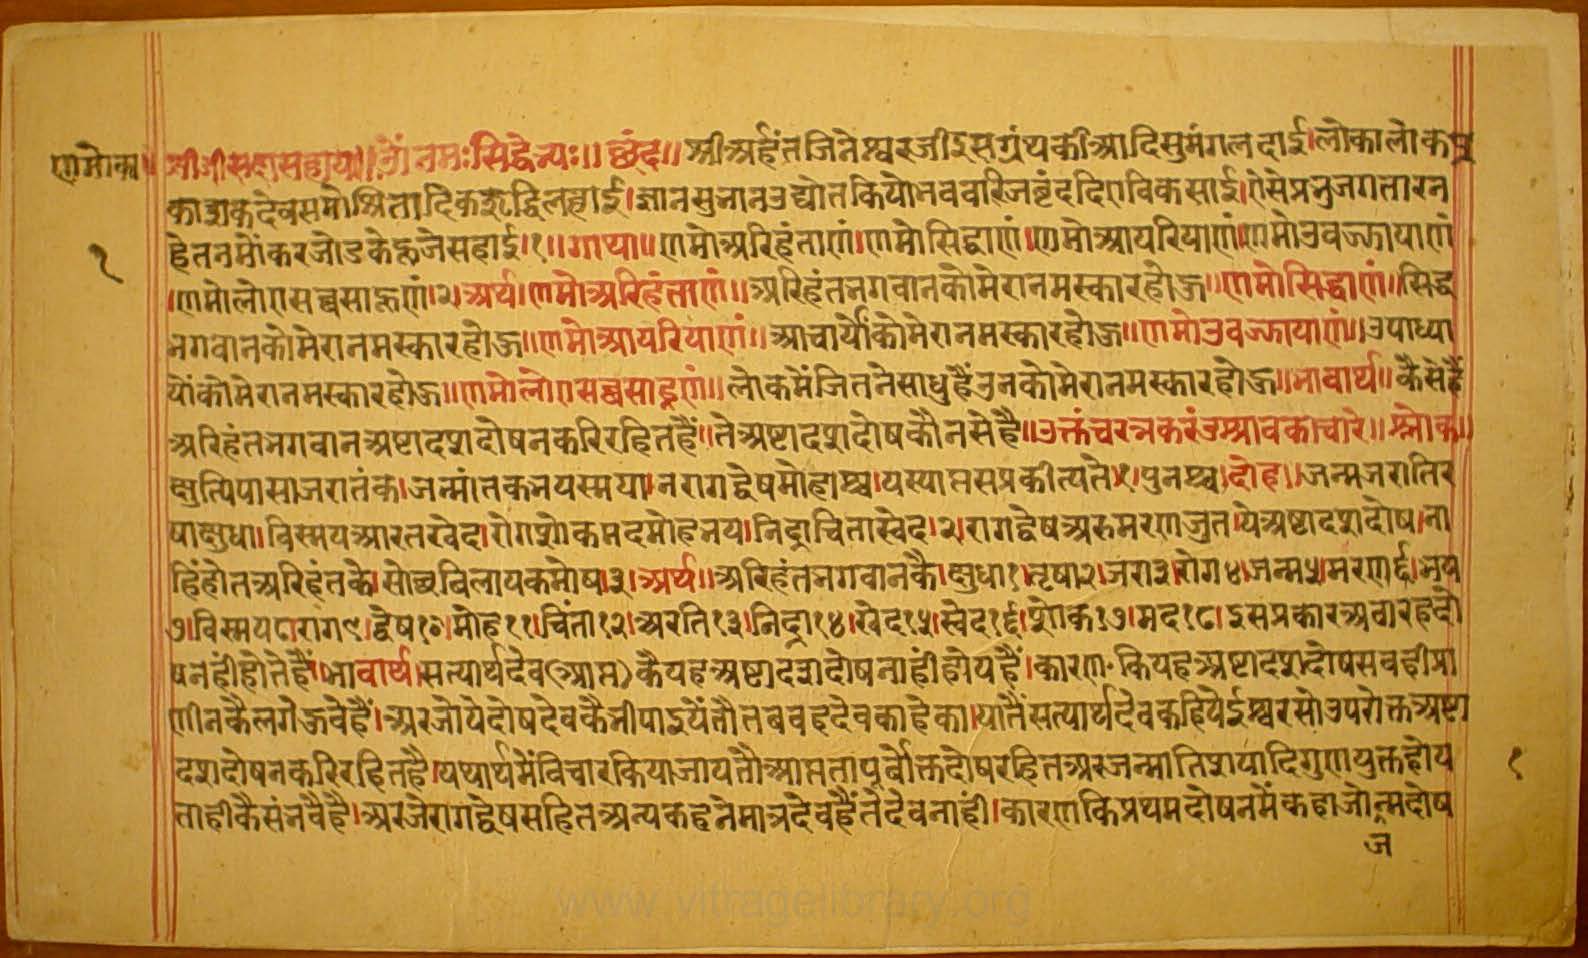 णमोका
१
॥श्रीजीसदासहाय॥ॐनमःसिद्धेभ्यः॥छंद॥श्रीअर्हंतजिनेश्वरजीइसग्रंथकीआदिसुमंगलदाई।लोकालोकप्र
काशकदेवसमोश्रितादिकऋद्धिलहाई।ज्ञानसुभानउद्योतकियोभवबारिजवृंददिएविकसाई।ऐसेप्रभुजगतारन
हेतनमोंकरजोडकेहूजेसहाई।१॥गाथा॥णमोअरिहंताणं।णमोसिद्धाणं।णमोआयरियाणं।णमोउवज्झायाणं
।णमोलोएसव्वसाहूणं।२।अर्थ।णमोअरिहंताणं॥अरिहंतभगवानकोमेरानमस्कारहोऊ॥णमोसिद्धाणं॥सिद्ध
भगवानकोमेरानमस्कारहोऊ॥णमोआयरियाणं॥आचार्योंकोमेरानमस्कारहोऊ॥णमोउवज्झायाणं॥उपाध्या
योंकोमेरानमस्कारहोऊ॥णमोलोएसव्वसाहूणं॥लोकमेंजितनेसाधुहैंउनकोमेरानमस्कारहोऊ॥भावार्थ॥कैसेहैं
अरिहंतभगवानअष्टादशदोषनकरिरहितहैं॥तेअष्टादशदोषकौनसेहै॥उक्तंचरत्नकरंडश्रावकाचारे॥श्लोक॥
क्षुत्पिपासाजरातंक।जन्मांतकभयस्मया।नरागद्वेषमोहाश्च।यस्याप्तसप्रकीर्त्यते१।पुनश्च।दोहा।जन्मजरातिर
षाक्षुधा।विस्मयआरतखेद।रोगशोकमदमोहभय।निद्राचिंतास्वेद।२।रागद्वेषअरुमरणजुत।येअष्टादशदोष।ना
हिंहोतअरिहंतके।सोछविलायकमोष।३।अर्थ॥अरिहंतभगवानकै।क्षुधा१।तृषा२।जरा३।रोग४।जन्म५।मरण६।भय
७।विस्मय८।राग९।द्वेष१०।मोह११।चिंता१२।अरति१३।निद्रा१४।खेद१५।स्वेद१६।शोक१७।मद१८।इसप्रकारअठारहदो
षनहींहोतेहैं।भावार्थ।सत्यार्थदेव(आप्त)कैयहअष्टादशदोषनाहींहोयहैं।कारण·कियहअष्टादशदोषसबहीप्रा
णीनकैलगेऊवेहैं।अरजोयेदोषदेवकैभीपाइयेंतौतबवहदेवकाहेका।यातैंसत्यार्थदेवकहियेईश्वरसोउपरोक्तअष्टा
दशदोषनकरिरहितहै।यथार्थमेंविचारकियाजायतौआप्ततापूर्बोक्तदोषरहितअरजन्मातिशयादिगुणयुक्तहोय
ताहीकैसंभवैहै।अरजेरागद्वेषसहितअन्यकहनेमात्रदेवहैंतेदेवनाहीं।कारणकिप्रथमदोषनमेंकहाजोन्मदोष
ज
१
www.vitragelibrary.org